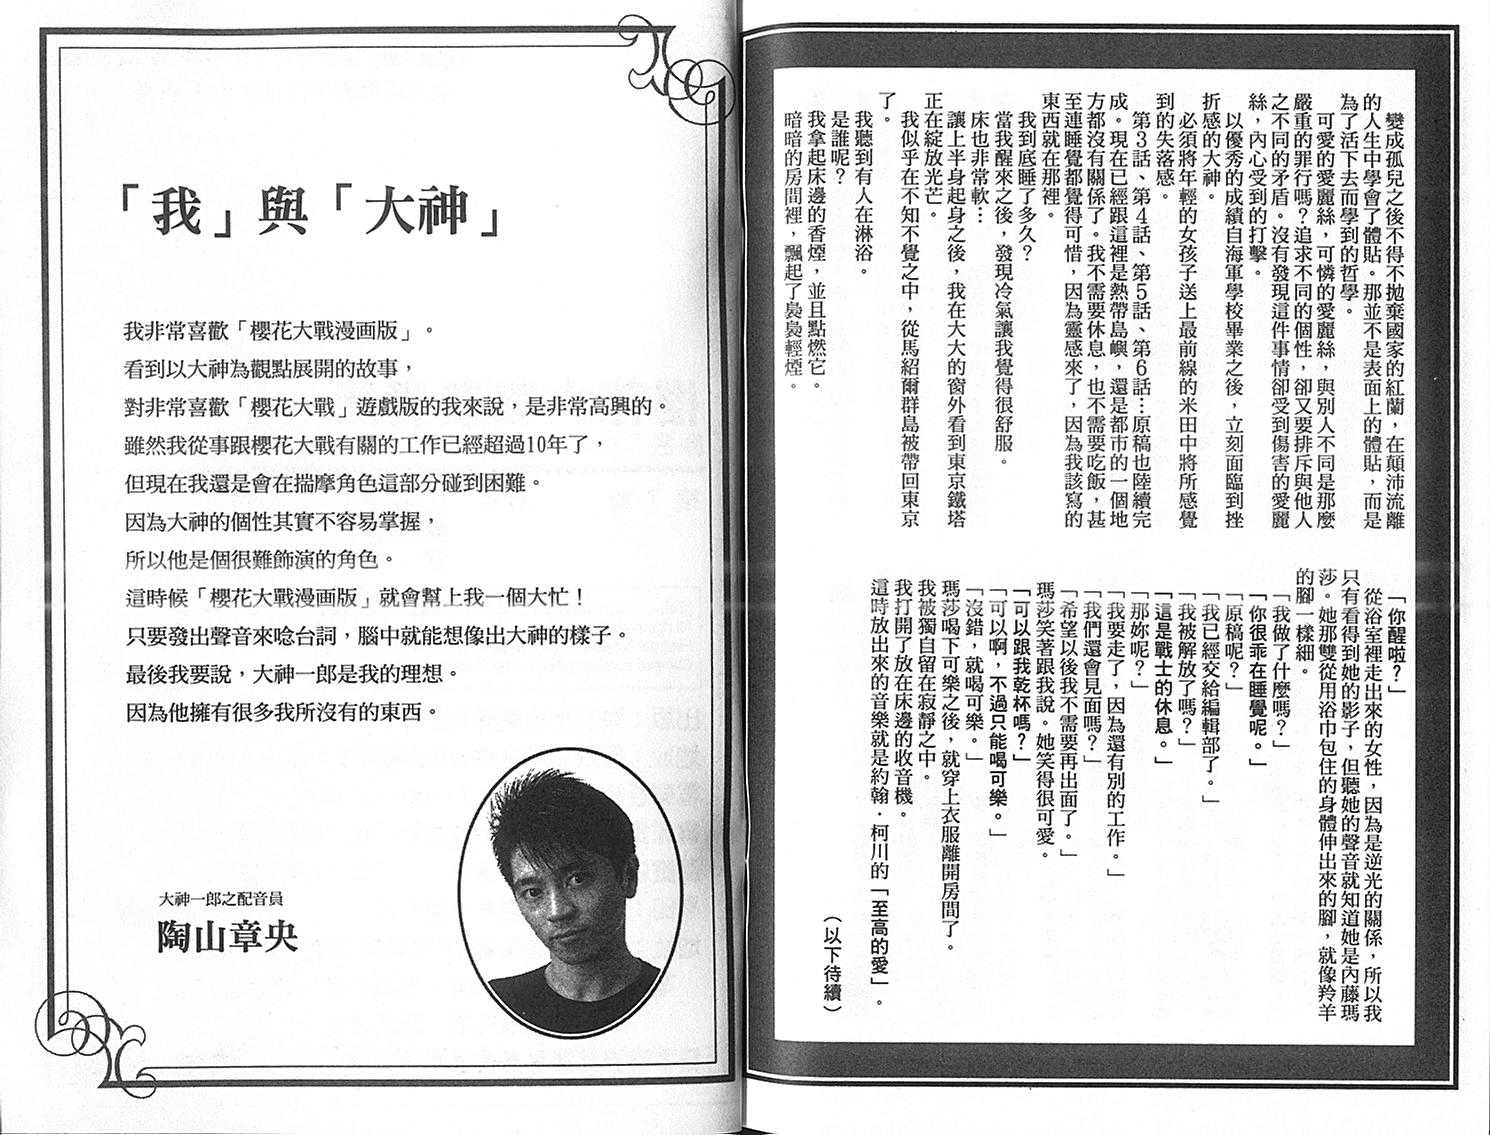 變成孤兒之後不得不拋棄國家的紅蘭，在顛沛流離
的人生中學會了體貼。那並不是表面上的體貼，而是
為了活下去而學到的哲學。
可愛的愛麗絲，可憐的愛麗絲，與別人不同是那麼
嚴重的罪行嗎？追求不同的個性，卻又要排斥與他人
之不同的矛盾。沒有發現這件事情卻受到傷害的愛麗
絲，內心受到的打擊。
以優秀的成績自海軍學校畢業之後，立刻面臨到挫
折感的大神。
必須將年輕的女孩子送上最前線的米田中將所感覺
到的失落感。
第3話、第4話、第5話、第6話…原稿也陸續完
成。現在已經跟這裡是熱帶島嶼，還是都市的一個地
方都沒有關係了。我不需要休息，也不需要吃飯，甚
至連睡覺都覺得可惜，因為靈感來了，因為我該寫的
東西就在那裡。
我到底睡了多久？
當我醒來之後，發現冷氣讓我覺得很舒服。
床也非常軟…
讓上半身起身之後，我在大大的窗外看到東京鐵塔
正在綻放光芒。
我似乎在不知不覺之中，從馬紹爾群島被帶回東京
了。
我聽到有人在淋浴。
是誰呢？
我拿起床邊的香煙，並且點燃它。
暗暗的房間裡，飄起了裊裊輕煙。
「你醒啦？」
從浴室裡走出來的女性，因為是逆光的關係，所以我
只有看得到她的影子，但聽她的聲音就知道她是內藤瑪
莎。她那雙從用浴巾包住的身體伸出來的腳，就像羚羊
的腳一樣細。
「我做了什麼嗎？」
「你很乖在睡覺呢。」
「原稿呢？」
「我已經交給編輯部了。」
「我被解放了嗎？」
「這是戰士的休息。」
「那妳呢？」
「我要走了，因為還有別的工作。」
「我們還會見面嗎？」
「希望以後我不需要再出面了。」
瑪莎笑著跟我說。她笑得很可愛。
「可以跟我乾杯嗎？」
「可以啊，不過只能喝可樂。」
「沒錯，就喝可樂。」
瑪莎喝下可樂之後，就穿上衣服離開房間了。
我被獨自留在寂靜之中。
我打開了放在床邊的收音機。
這時放出來的音樂就是約翰．柯川的「至高的愛」。
（以下待續）
「我」與「大神」
我非常喜歡「櫻花大戰漫画版」。
看到以大神為觀點展開的故事，
對非常喜歡「櫻花大戰」遊戲版的我來說，是非常高興的。
雖然我從事跟櫻花大戰有關的工作已經超過10年了，
但現在我還是會在揣摩角色這部分碰到困難。
因為大神的個性其實不容易掌握，
所以他是個很難飾演的角色。
這時候「櫻花大戰漫画版」就會幫上我一個大忙！
只要發出聲音來唸台詞，腦中就能想像出大神的樣子。
最後我要說，大神一郎是我的理想。
因為他擁有很多我所沒有的東西。
大神一郎之配音員
陶山章央